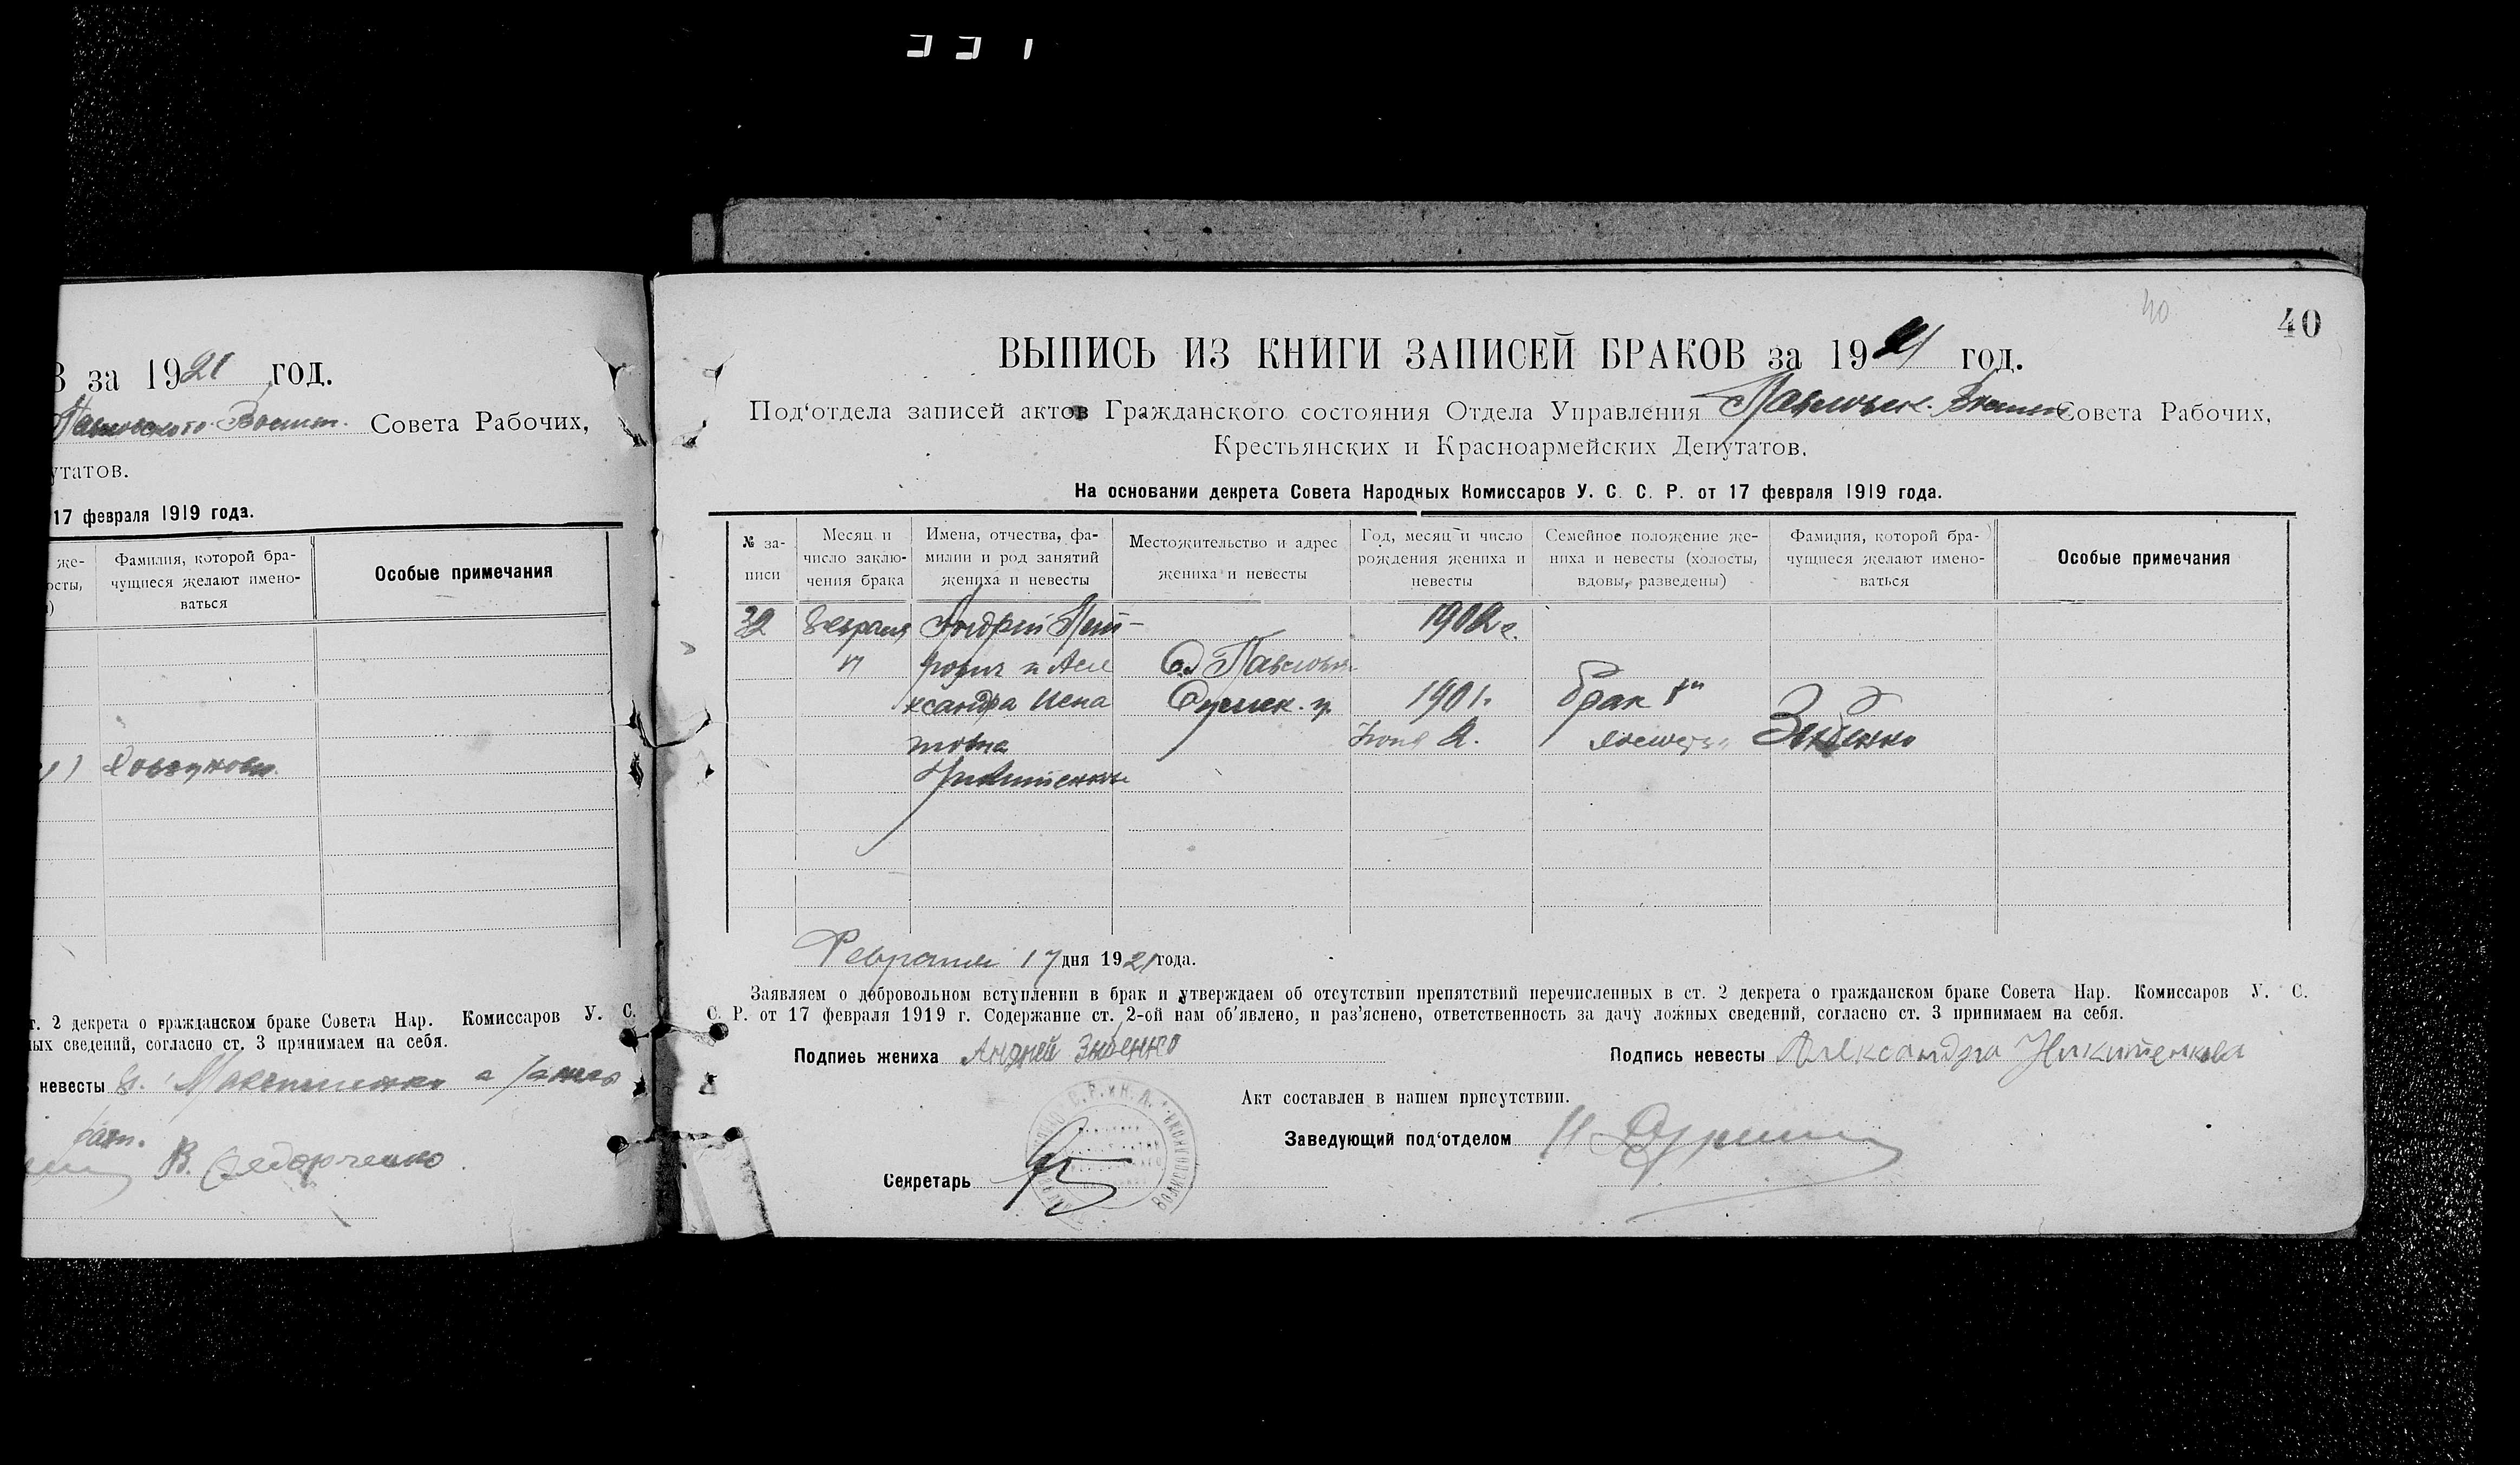 331
В за 1921 год.
Павловского Воен. Совета Рабочих,
утатов.
17 февраля 1919 года.
же-
ости,
Фамилия, которой бра-
чущиеся желают имено-
ваться
Особые примечания
т. 2 декрета о гражданском браке Совета Нар. Комиссаров У. С.
ных сведений, согласно ст. 3 принимаем на себя.
невесты
В. Федорченко
40
40
ВЫПИСЬ ИЗ КНИГИ ЗАПИСЕЙ БРАКОВ за 1921 год.
Под‘отдела записей актов Гражданского состояния Отдела Управления Павловск. Совета Рабочих,
Крестьянских и Красноармейских Депутатов.
На основании декрета Совета Народных Комиссаров У. С. С. Р. от 17 февраля 1919 года.
№ за-
писи
Месяц и
число заклю-
чения брака
Имена, отчества, фа-
милии и род занятий
жениха и невесты
Местожительство и адрес
жениха и невесты
Год, месяц и число
рождения жениха и
невесты
Семейное положение же-
ниха и невесты (холосты,
вдовы, разведены)
Фамилия, которой бра-
чущиеся желают имено-
ваться
Особые примечания
32 Февраля Андрій 1902 г.
17 и Але Сл Павловк.
ксандра Сумск. у. 1901. брак
Зыбенко
Никитенкова
Февраля 17 дня 1921 года.
Заявляем о добровольном вступлении в брак и утверждаем об отсутствии препятствий перечисленных в ст. 2 декрета о гражданском браке Совета Нар. Комиссаров У. С.
С. Р. от 17 февраля 1919 г. Содержание ст. 2-ой нам об‘явлено, и раз‘яснено, ответственность за дачу ложных сведений, согласно ст. 3 принимаем на себя.
Подпись жениха Андрей Зыбенко
Подпись невесты Александра Никитенкова
Акт составлен в нашем присутствии.
Заведующий под‘отделом
Секретарь